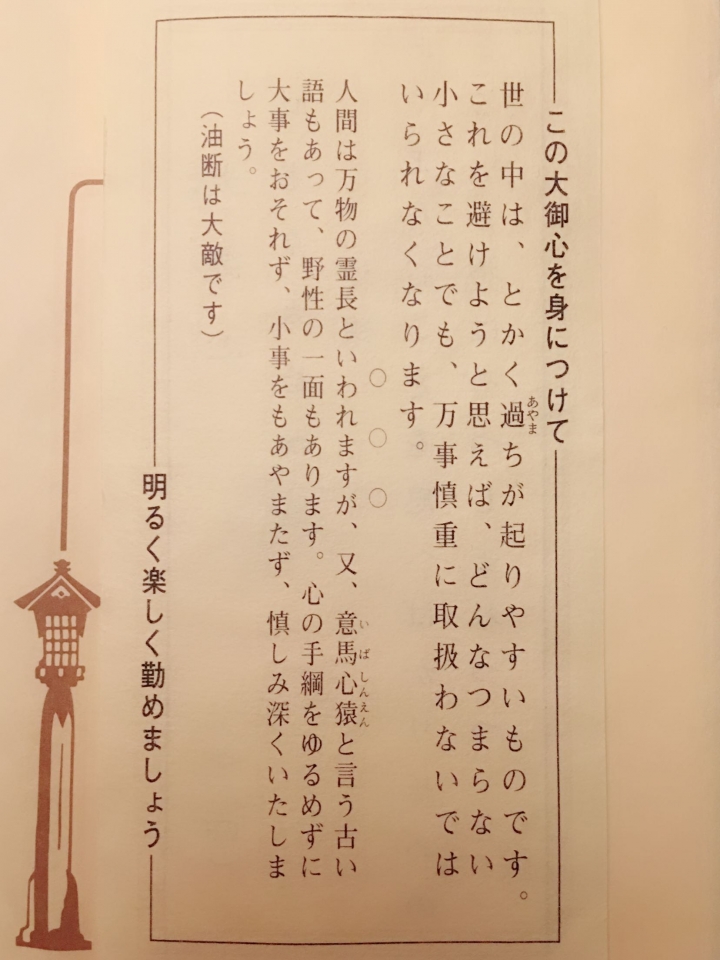 この大御心を身につけて
世の中は、とかく過ちが起りやすいものです。
あやま
これを避けようと思えば、どんなつまらない
小さなことでも、万事慎重に取扱わないでは
いられなくなります。
○ ○ ○
人間は万物の霊長といわれますが、又、意馬心猿と言う古い
いばしんえん
語もあって、野性の一面もあります。心の手綱をゆるめずに
大事をおそれず、小事をもあやまたず、慎しみ深くいたしま
しょう。
（油断は大敵です）
明るく楽しく勤めましょう